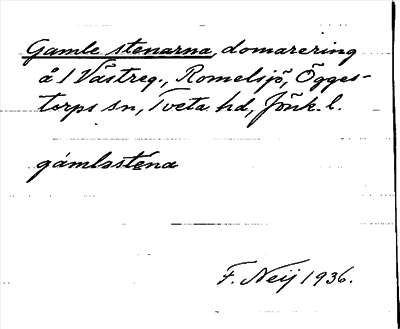 Gamle stenarna, domarering
å 1 Västreg., Romelsjö, Ögges-
torps sn, Tveta hd, Jönk. l.
gámlɘsténa
F. Neij 1936.